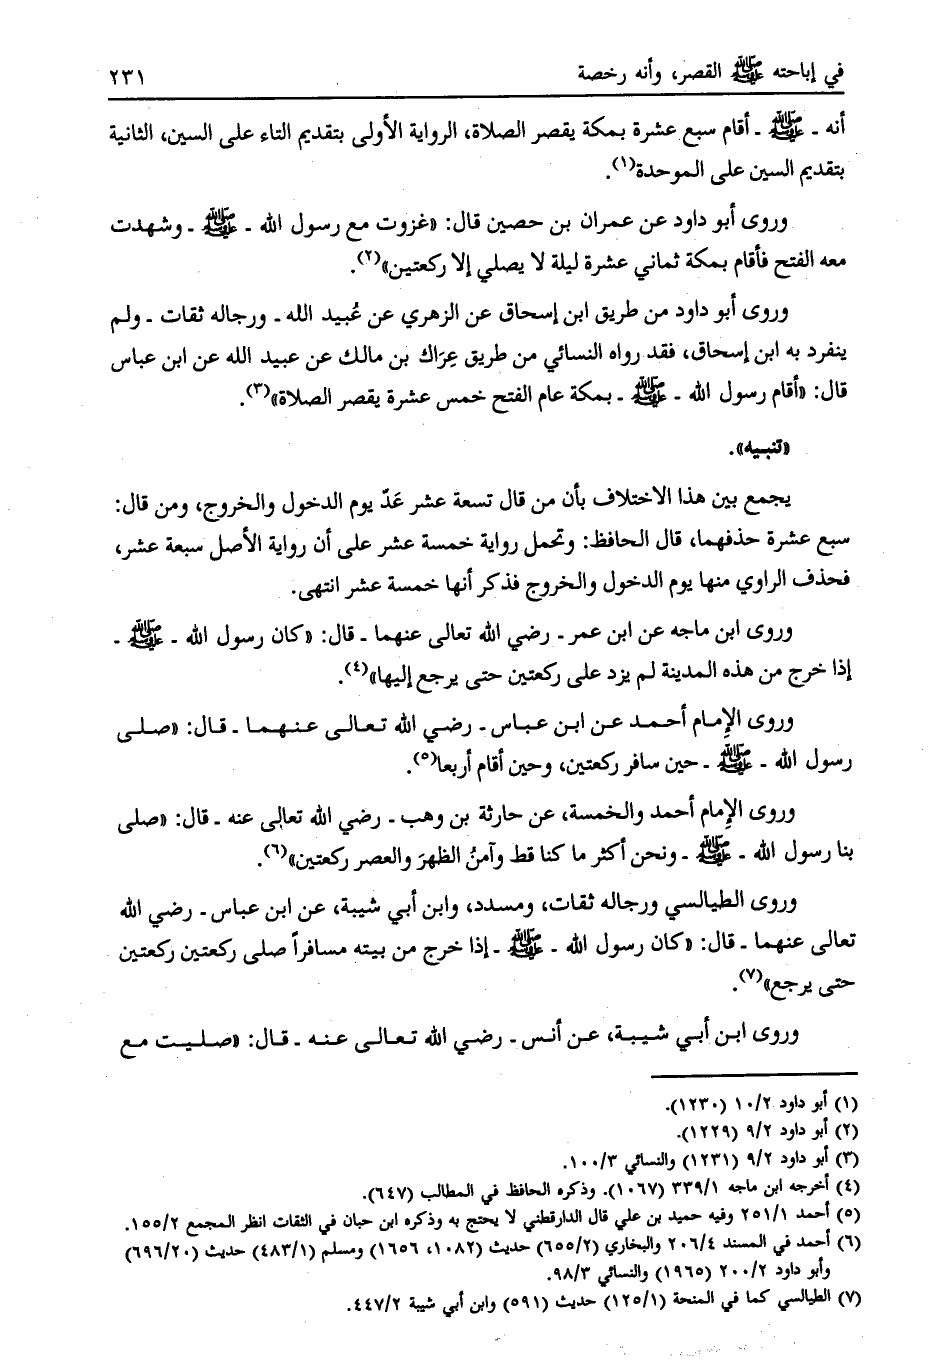 في إباحته ﷺ القصر، وأنه رخصة ٢٣١
أنه ـ ﷺ ـ أقام سبع عشرة بمكة يقصر الصلاة، الرواية الأولى بتقديم التاء على السين، الثانية
بتقديم السين على الموحدة(١).
وروى أبو داود عن عمران بن حصين قال: «غزوت مع رسول الله ـ ﷺ ـ وشهدت
معه الفتح فأقام بمكة ثماني عشرة ليلة لا يصلي إلا ركعتين»(٢).
وروى أبو داود من طريق ابن إسحاق عن الزهري عن عُبيد الله ـ ورجاله ثقات ـ ولم
ينفرد به ابن إسحاق، فقد رواه النسائي من طريق عِرَاك بن مالك عن عبيد الله عن ابن عباس
قال: «أقام رسول الله ـ ﷺ ـ بمكة عام الفتح خمس عشرة يقصر الصلاة»(٣).
«تنبيه».
يجمع بين هذا الاختلاف بأن من قال تسعة عشر عَدّ يوم الدخول والخروج، ومن قال:
سبع عشرة حذفهما، قال الحافظ: وتحمل رواية خمسة عشر على أن رواية الأصل سبعة عشر،
فحذف الراوي منها يوم الدخول والخروج فذكر أنها خمسة عشر انتهى.
وروى ابن ماجه عن ابن عمر ـ رضي الله تعالى عنهما ـ قال: «كان رسول الله ـ ﷺ ـ
إذا خرج من هذه المدينة لم يزد على ركعتين حتى يرجع إليها»(٤).
وروى الإمام أحمد عن ابن عباس ـ رضي الله تعالى عنهما ـ قال: «صلى
رسول الله ـ ﷺ ـ حين سافر ركعتين، وحين أقام أربعا(٥).
وروى الإمام أحمد والخمسة، عن حارثة بن وهب ـ رضي الله تعالى عنه ـ قال: «صلى
بنا رسول الله ـ ﷺ ـ ونحن أكثر ما كنا قط وآمنُ الظهرَ والعصر ركعتين»(٦).
وروى الطيالسي ورجاله ثقات، ومسدد، وابن أبي شيبة، عن ابن عباس ـ رضي الله
تعالى عنهما ـ قال: «كان رسول الله ـ ﷺ ـ إذا خرج من بيته مسافراً صلى ركعتين ركعتين
حتى يرجع»(٧).
وروى ابن أبي شيبة، عن أنس ـ رضي الله تعالى عنه ـ قال: «صليت مع
(١) أبو داود ١٠/٢ (١٢٣٠).
(٢) أبو داود ٩/٢ (١٢٢٩).
(٣) أبو داود ٩/٢ (١٢٣١) والنسائي ١٠٠/٣.
(٤) أخرجه ابن ماجه ٣٣٩/١ (١٠٦٧). وذكره الحافظ في المطالب (٦٤٧).
(٥) أحمد ٢٥١/١ وفيه حميد بن علي قال الدارقطني لا يحتج به وذكره ابن حبان في الثقات انظر المجمع ١٥٥/٢.
(٦) أحمد في المسند ٢٠٦/٤ والبخاري (٦٥٥/٢) حديث (١٠٨٢، ١٦٥٦) ومسلم (٤٨٣/١) حديث (٦٩٦/٢٠)
وأبو داود ٢٠٠/٢ (١٩٦٥) والنسائي ٩٨/٣.
(٧) الطيالسي كما في المنحة (١٢٥/١) حديث (٥٩١) وابن أبي شيبة ٤٤٧/٢.